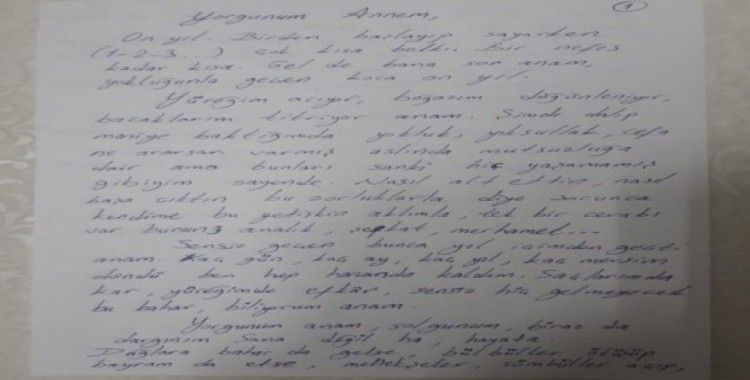 1
Yorgunum Annem,
On yıl. Birden başlayıp sayarken
(1-2-3...) çok kısa belki. Bir nefes
kadar kısa. Gel de bana sor anam,
yokluğunla geçen koca on yıl.
Yüreğim acıyor, boğazım düğümleniyor,
bacaklarım titriyor anam. Şimdi dalıp
maziye baktığımda yokluk, yoksulluk, cefa
ne ararsan varmış aslında mutsuzluğa
dair ama bunları sanki hiç yaşamamış
gibiyim sayende. Nasıl alt ettin, nasıl
başa çıktın bu zorluklarla diye sorunca
kendime bu yetişkin aklımla, tek bir cevabı
var bunun; analık, şefkat, merhamet...
Sensiz geçen bunca yıl içimden geçti
anam. Kaç gün, kaç ay, kaç yıl, kaç mevsim
döndü ben hep hazanda kaldım. Saçlarımda
kar, yüreğimde efkâr, sensiz hiç gelmeyecek
bu bahar, biliyorum anam.
Yorgunum anam, solgunum, biraz da
dargınım Sana değil ha, hayata.
Dağlara bahar da gelse, bülbüller ötüşüp
bayram da etse, menekşeler, sümbüller açıp,